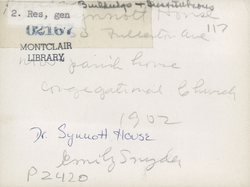 Buildings + Institutions
2. Res, gen
Synnott House
02167
Fullerton Ave
117
MONTCLAIR
LIBRARY
now parish home
Congregational Church
1902
Dr. Synnott House
Emily Snyder
P2420